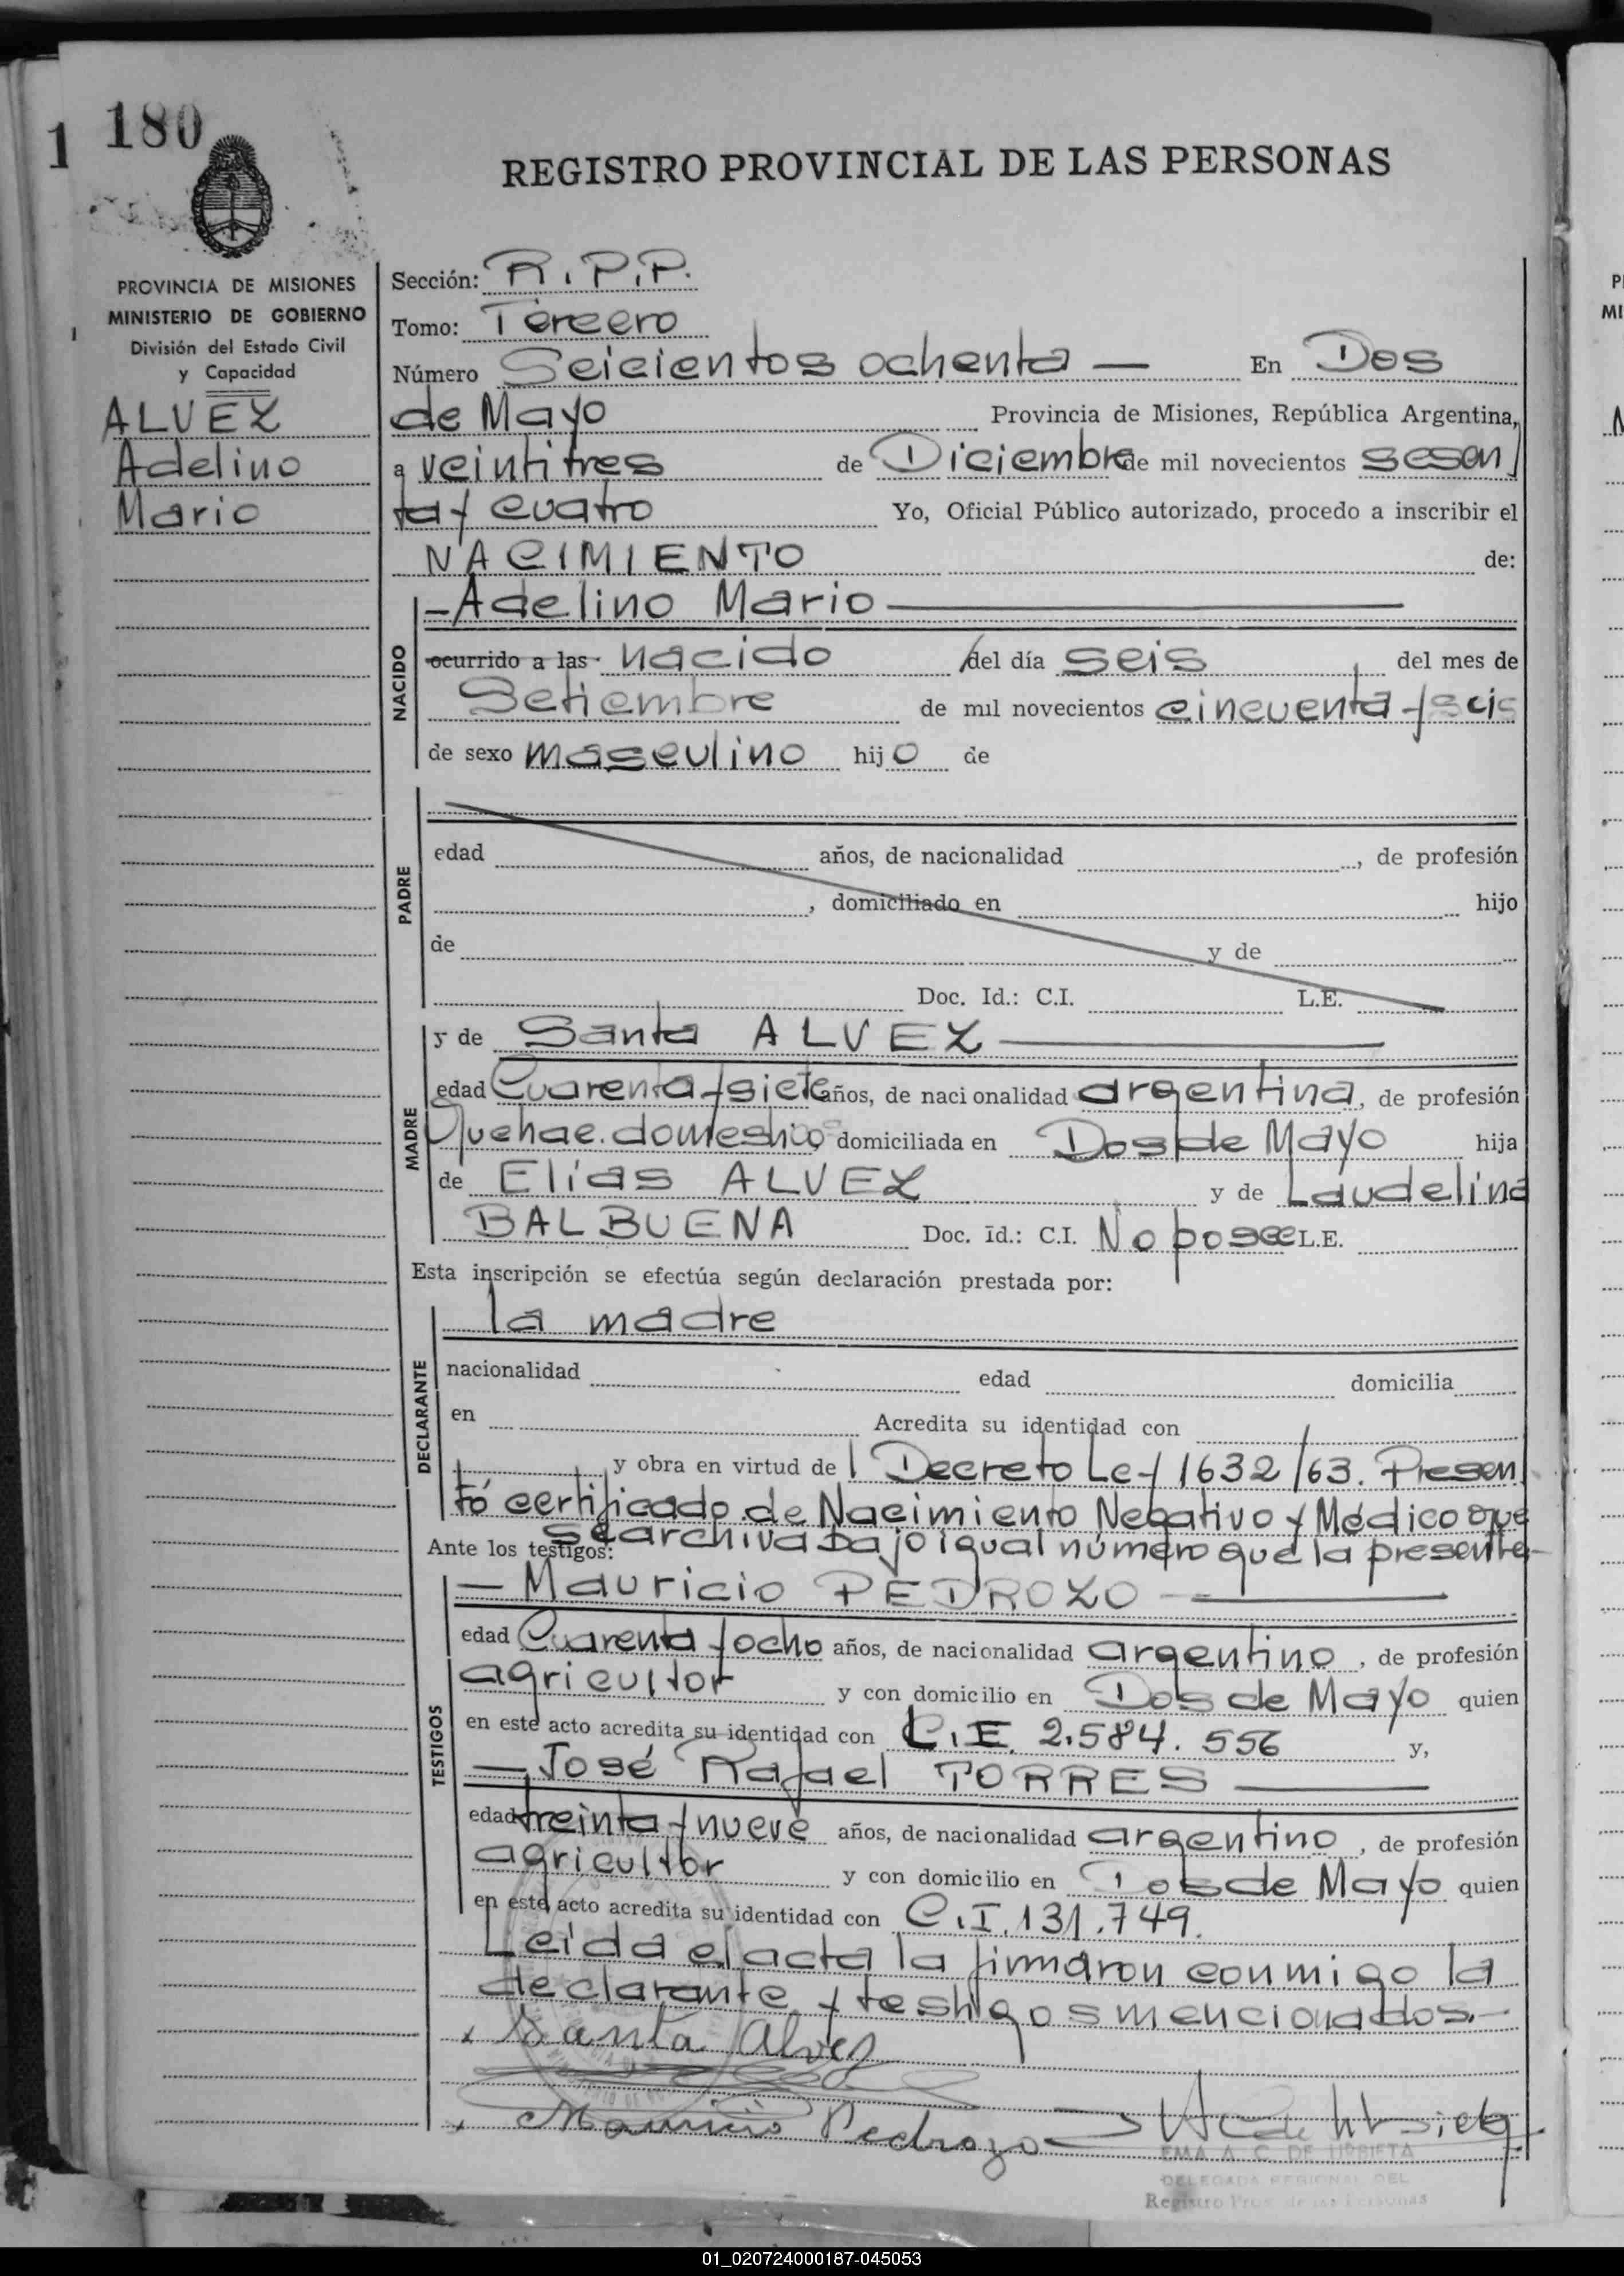 1 180
REGISTRO PROVINCIAL DE LAS PERSONAS
PROVINCIA DE MISIONES
MINISTERIO DE GOBIERNO
División del Estado Civil
y Capacidad
ALVEZ
Adelino
Mario
Sección: R.P.P.
Tomo: Tercero
Número Seicientos ochenta — En Dos
de Mayo Provincia de Misiones, República Argentina,
a veintitres de Diciembre de mil novecientos sesen
ta y cuatro Yo, Oficial Público autorizado, procedo a inscribir el
NACIMIENTO de:
NACIDO
— Adelino Mario —
ocurrido a las nacido /del día seis del mes de
Setiembre de mil novecientos cincuenta y seis
de sexo masculino hijo de
PADRE
edad años, de nacionalidad , de profesión
, domiciliado en hijo
de y de
Doc. Id.: C.I. L.E.
MADRE
y de Santa ALVEZ —
edad Cuarenta y siete años, de nacionalidad argentina, de profesión
Quehac. domesticos domiciliada en Dos de Mayo hija
de Elías ALVEZ y de Laudelina
BALBUENA Doc. Id.: C.I. No posee L.E.
Esta inscripción se efectúa según declaración prestada por:
DECLARANTE
la madre
nacionalidad edad domicilia
en Acredita su identidad con
y obra en virtud de l Decreto Ley 1632/63. Presen
tó certificado de Nacimiento Negativo y Médico que
se archiva bajo igual número que la presente-
Ante los testigos:
TESTIGOS
— Mauricio PEDROZO —
edad Cuarenta y ocho años, de nacionalidad argentino, de profesión
agricultor y con domicilio en Dos de Mayo quien
en este acto acredita su identidad con C.I. 2.584.556 y,
— José Rafael TORRES —
edad treinta y nueve años, de nacionalidad argentino, de profesión
agricultor y con domicilio en Dos de Mayo quien
en este acto acredita su identidad con C.I. 131.749.
Leída el acta la firmaron conmigo la
declarante y testigos mencionados.-
Santa Alvez
Mauricio Pedrozo
EMA A. C. DE URBIETA
DELEGADA REGIONAL DEL
Registro Prov. de las Personas
01_020724000187-045053